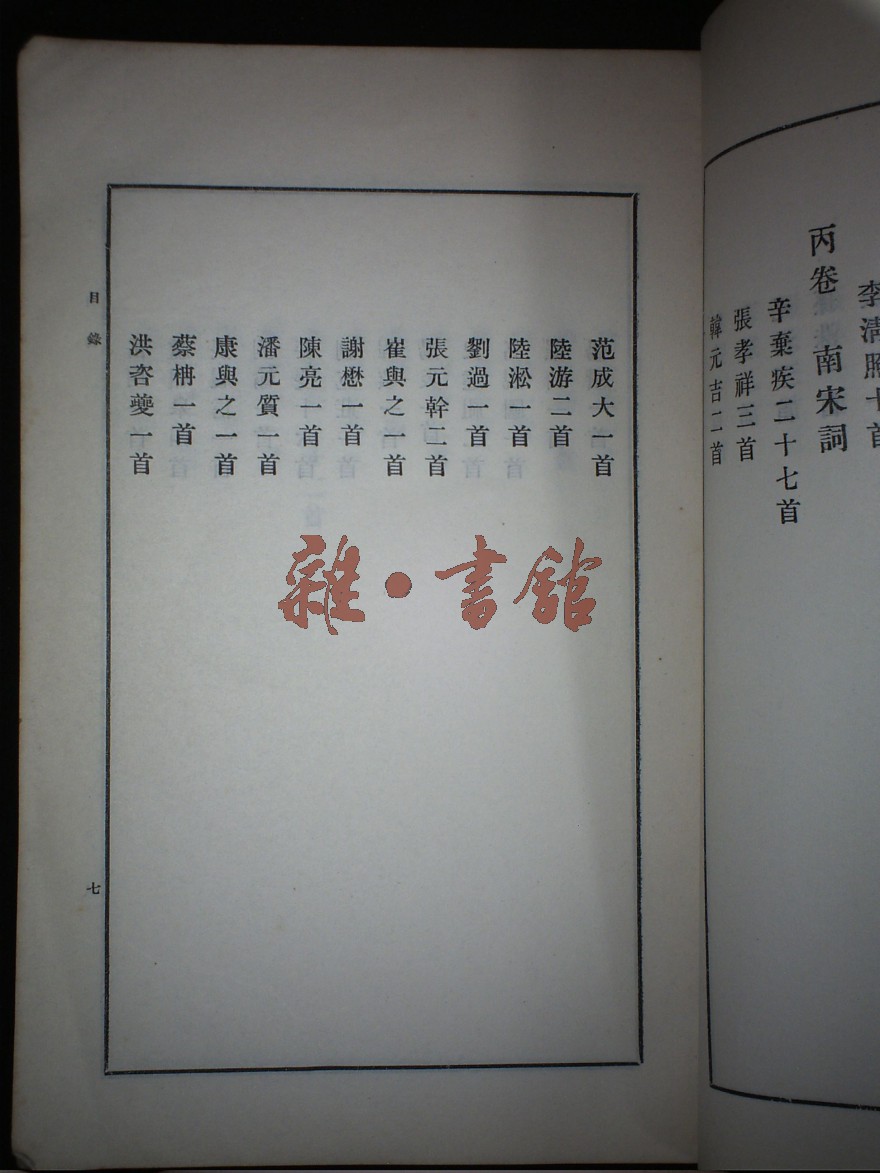 李清照十首
丙卷 南宋詞
辛棄疾二十七首
張孝祥三首
韓元吉二首
范成大一首
陸游二首
陸淞一首
劉過一首
張元幹二首
崔與之一首
謝懋一首
陳亮一首
潘元質一首
康與之一首
蔡枏一首
洪咨夔一首
目錄
七
雜·書館